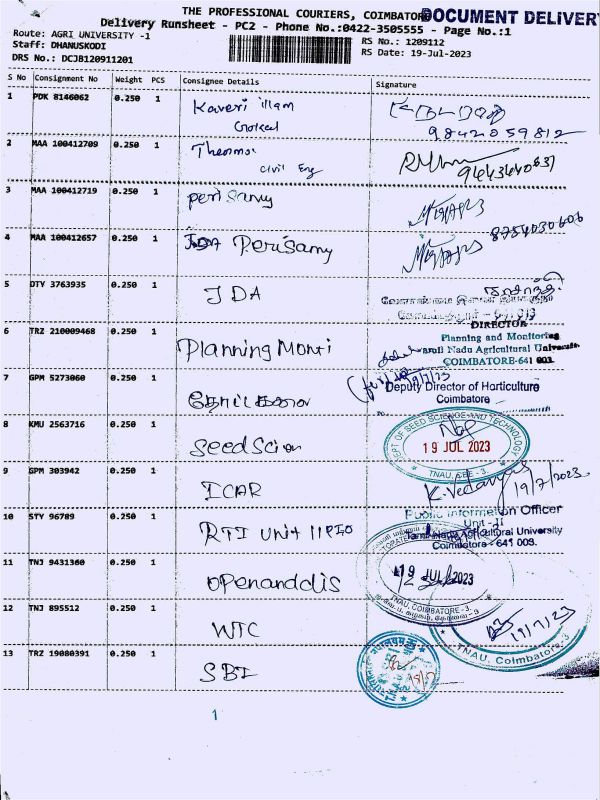 THE PROFESSIONAL COURIERS, COIMBATORE
DOCUMENT DELIVERY
Delivery Runsheet - PC2 - Phone No.:0422-3505555 - Page No.:1
Route: AGRI UNIVERSITY -1
RS No.: 1209112
Staff: DHANUSKODI
RS Date: 19-Jul-2023
DRS No.: DCJB120911201
S No Consignment No Weight PCS Consignee Details Signature
1 PDK 8146062 0.250 1 Kaveri illam
9842059812
2 MAA 100412709 0.250 1 Thenmoz
civil Eng
3 MAA 100412719 0.250 1 perisamy
8754030606
4 MAA 100412657 0.250 1 JDA Perisamy
5 DTY 3763935 0.250 1 JDA
DIRECTOR
6 TRZ 210009468 0.250 1 Planning Monti
Planning and Monitoring
Tamil Nadu Agricultural University
COIMBATORE-641 003.
7 GPM 5273060 0.250 1
Deputy Director of Horticulture
Coimbatore
8 KMU 2563716 0.250 1 Seed Scien
DEPT OF SEED SCIENCE AND TECHNOLOGY
19 JUL 2023
TNAU, CBE - 3.
9 GPM 303942 0.250 1 ICAR
19/7/2023
10 STY 96789 0.250 1 RTI Unit II PIO
Public Information Officer
Unit-II
Tamil Nadu Agricultural University
Coimbatore - 641 003.
11 TNJ 9431360 0.250 1 openanddis
19 JUL 2023
TNAU, COIMBATORE-3.
12 TNJ 895512 0.250 1 WTC
19/7/23
TNAU, Coimbatore-3.
13 TRZ 19080391 0.250 1 SBI
1